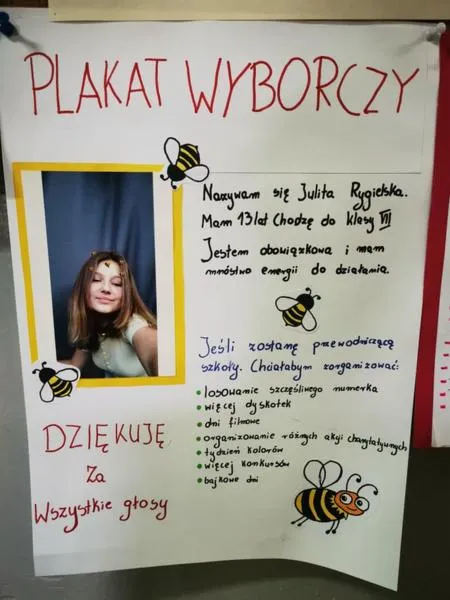 PLAKAT WYBORCZY
Nazywam się Julita Rygielska.
Mam 13 lat Chodzę do klasy VII
Jestem obowiązkowa i mam
mnóstwo energii do działania.
Jeśli zostanę przewodniczącą
szkoły. Chciałabym zorganizować:
• losowanie szczęśliwego numerka
• więcej dyskotek
• dni filmowe
• organizowanie różnych akcji charytatywnych
• tydzień kolorów
• więcej konkursów
• bajkowe dni
DZIĘKUJĘ
Za
Wszystkie głosy